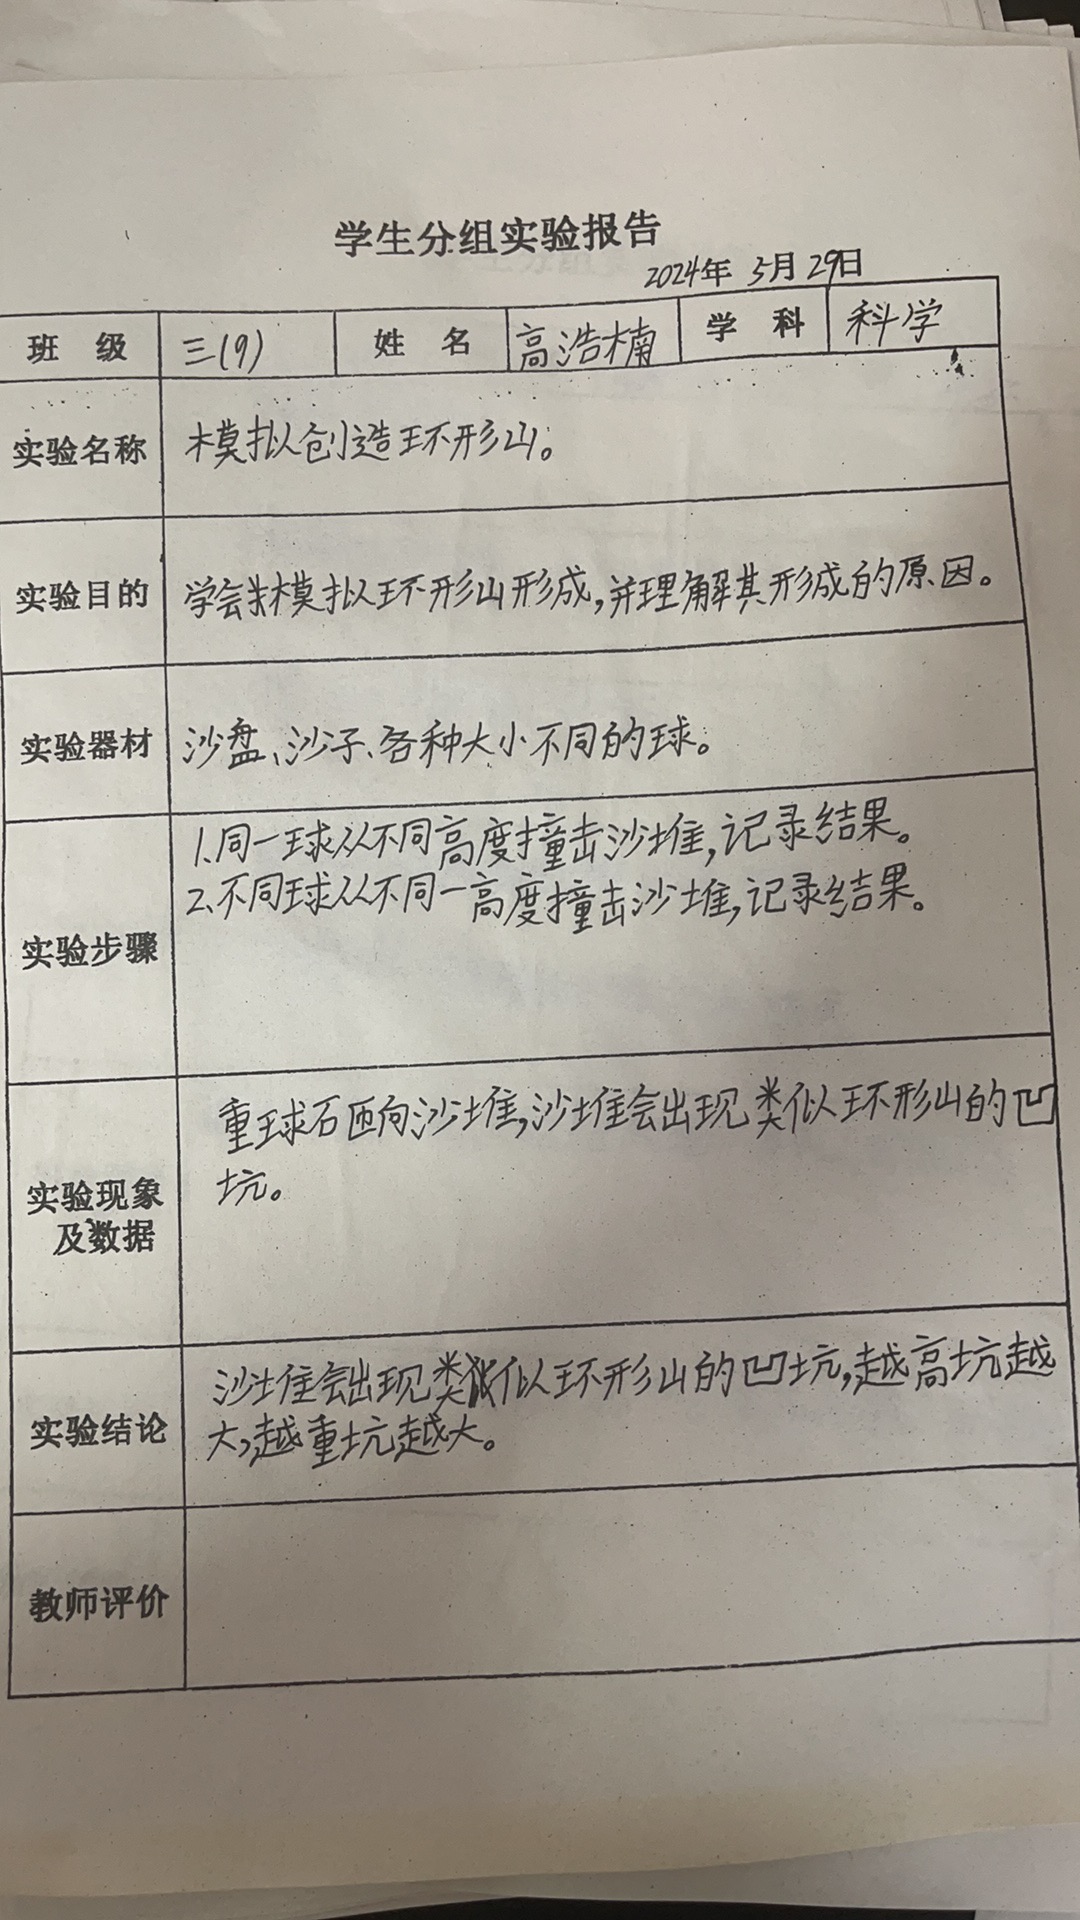 学生分组实验报告
2024年 5月 29日
班 级 三(9) 姓 名 高浩楠 学 科 科学
实验名称 模拟创造环形山。
实验目的 学会模拟环形山形成,并理解其形成的原因。
实验器材 沙盘、沙子、各种大小不同的球。
1.同一球从不同高度撞击沙堆,记录结果。
2.不同球从不同一高度撞击沙堆,记录结果。
实验步骤
重球石匝向沙堆,沙堆会出现类似环形山的凹
坑。
实验现象
及数据
沙堆会出现类似环形山的凹坑,越高坑越
大,越重坑越大。
实验结论
教师评价